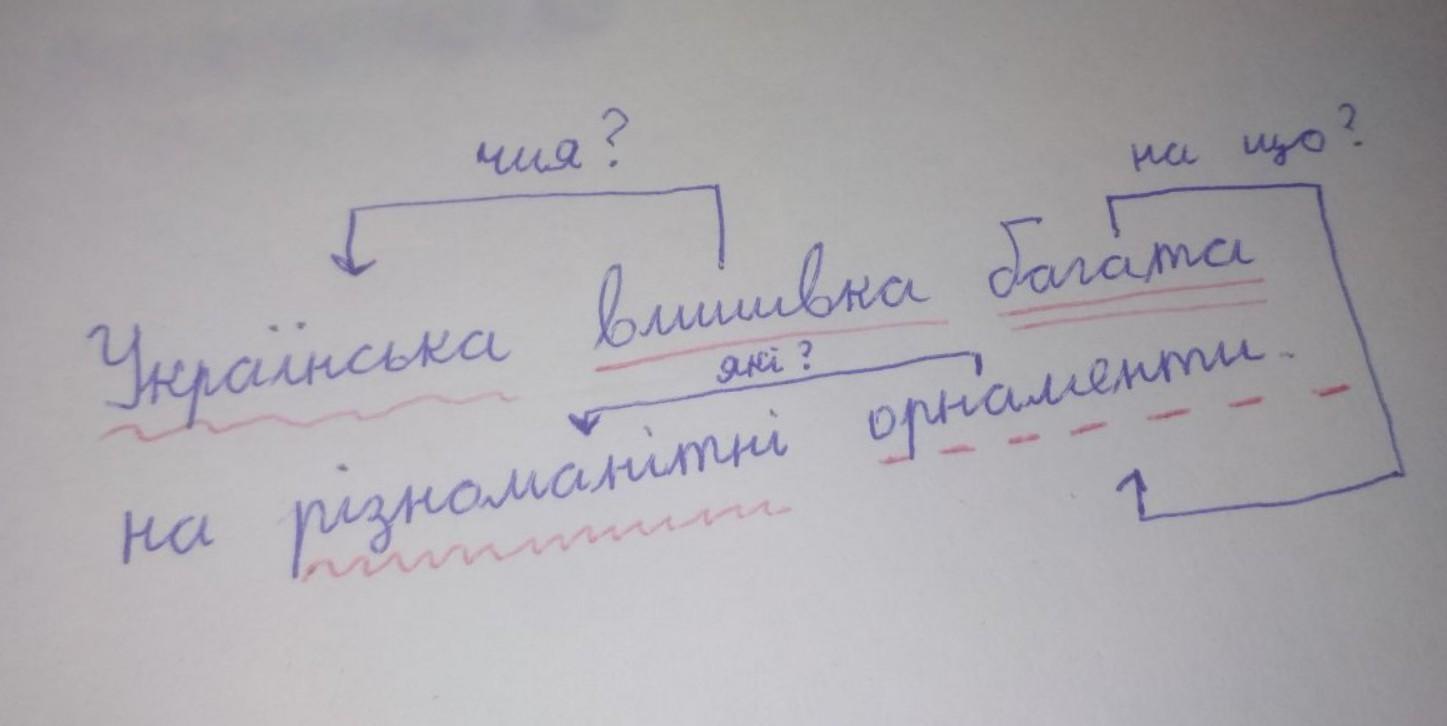 чия? на що?
Українська вишивка багата
які?
на різноманітні орнаменти.